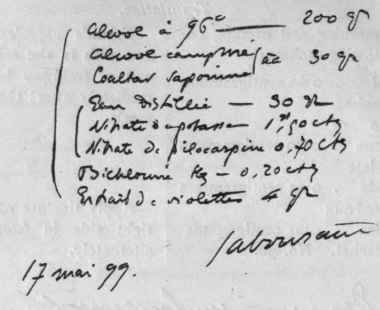 Alcool à 96° — 200 gr
Alcool camphré
Coaltar saponiné } ãã 30 gr
Eau distillée — 30 gr
Nitrate de potasse 1gr,50 ctg
Nitrate de pilocarpine 0,70 ctg
Bichlorure Hg — 0,20 ctg
Extrait de violettes 4 gr
17 mai 99.